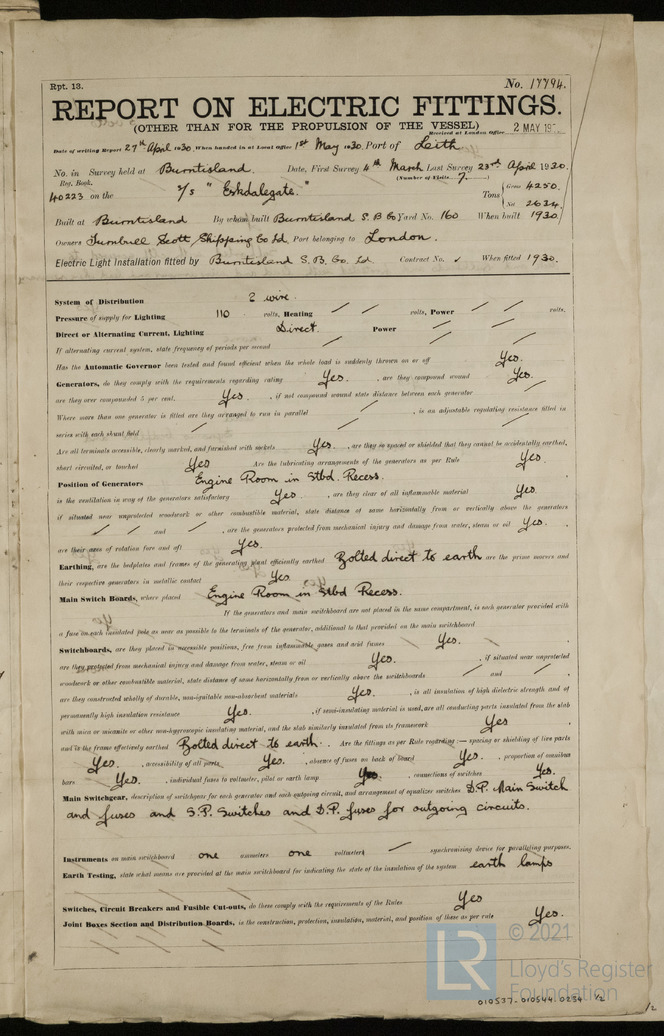 Rpt. 13.
No. 17794.
REPORT ON ELECTRIC FITTINGS.
(OTHER THAN FOR THE PROPULSION OF THE VESSEL)
Received at London Office 2 MAY 19
Date of writing Report 27th April 1930. When handed in at Local Office 1st May 1930. Port of Leith
No. in Survey held at Burntisland. Date, First Survey 4th March Last Survey 23rd April 1930
Reg. Book. (Number of Visits 7.)
40223 on the S/S "Eskdalegate." Tons Gross 4250.
Net 2634.
Built at Burntisland By whom built Burntisland S.B Co Yard No. 160 When built 1930
Owners Turnbull Scott Shipping Co Ld Port belonging to London.
Electric Light Installation fitted by Burntisland S.B. Co. Ld. Contract No. ✓ When fitted 1930.
System of Distribution 2 wire.
Pressure of supply for Lighting 110 volts, Heating / / volts, Power / / volts.
Direct or Alternating Current, Lighting Direct. Power / /
If alternating current system, state frequency of periods per second /
Has the Automatic Governor been tested and found efficient when the whole load is suddenly thrown on or off Yes.
Generators, do they comply with the requirements regarding rating Yes. , are they compound wound Yes.
are they over compounded 5 per cent. Yes. , if not compound wound state distance between each generator /
Where more than one generator is fitted are they arranged to run in parallel / , is an adjustable regulating resistance fitted in
series with each shunt field /
Are all terminals accessible, clearly marked, and furnished with sockets Yes. , are they so spaced or shielded that they cannot be accidentally earthed,
short circuited, or touched Yes Are the lubricating arrangements of the generators as per Rule Yes.
Position of Generators Engine Room in Stbd. Recess.
is the ventilation in way of the generators satisfactory Yes. , are they clear of all inflammable material Yes.
if situated near unprotected woodwork or other combustible material, state distance of same horizontally from or vertically above the generators
/ / and / , are the generators protected from mechanical injury and damage from water, steam or oil Yes.
are their axes of rotation fore and aft Yes.
Earthing, are the bedplates and frames of the generating plant efficiently earthed Bolted direct to earth are the prime movers and
their respective generators in metallic contact Yes.
Main Switch Boards, where placed Engine Room in Stbd Recess.
If the generators and main switchboard are not placed in the same compartment, is each generator provided with
a fuse on each insulated pole as near as possible to the terminals of the generator, additional to that provided on the main switchboard
Switchboards, are they placed in accessible positions, free from inflammable gases and acid fumes Yes.
are they protected from mechanical injury and damage from water, steam or oil Yes. , if situated near unprotected
woodwork or other combustible material, state distance of same horizontally from or vertically above the switchboards / and /
are they constructed wholly of durable, non-ignitable non-absorbent materials Yes. , is all insulation of high dielectric strength and of
permanently high insulation resistance Yes. , if semi-insulating material is used, are all conducting parts insulated from the slab
with mica or micanite or other non-hygroscopic insulating material, and the slab similarly insulated from its framework Yes
and is the frame effectively earthed Bolted direct to earth. Are the fittings as per Rule regarding :— spacing or shielding of live parts
Yes. , accessibility of all parts Yes. , absence of fuses on back of board Yes. , proportion of omnibus
bars Yes. , individual fuses to voltmeter, pilot or earth lamp Yes. , connections of switches Yes.
Main Switchgear, description of switchgear for each generator and each outgoing circuit, and arrangement of equalizer switches D.P. Main Switch
and fuses and S.P. Switches and D.P. fuses for outgoing circuits.
Instruments on main switchboard one ammeters one voltmeters / synchronising device for paralleling purposes.
Earth Testing, state what means are provided at the main switchboard for indicating the state of the insulation of the system earth lamps
Switches, Circuit Breakers and Fusible Cut-outs, do these comply with the requirements of the Rules Yes
Joint Boxes Section and Distribution Boards, is the construction, protection, insulation, material, and position of these as per rule Yes.
LR © 2021
Lloyd's Register
Foundation
010537-010544-0234 1/2